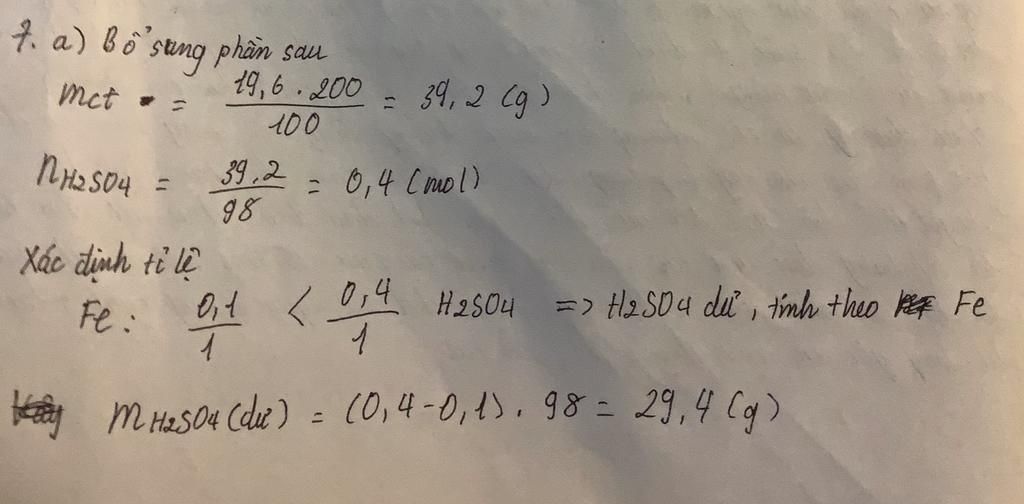 7. a) Bổ sung phần sau
mct = 19,6 . 200 / 100 = 39,2 (g)
nH2SO4 = 39.2 / 98 = 0,4 (mol)
Xác định tỉ lệ
Fe: 0,1 / 1 < 0,4 / 1 H2SO4 => H2SO4 dư, tính theo Fe
mH2SO4 (dư) = (0,4-0,1) . 98 = 29,4 (g)